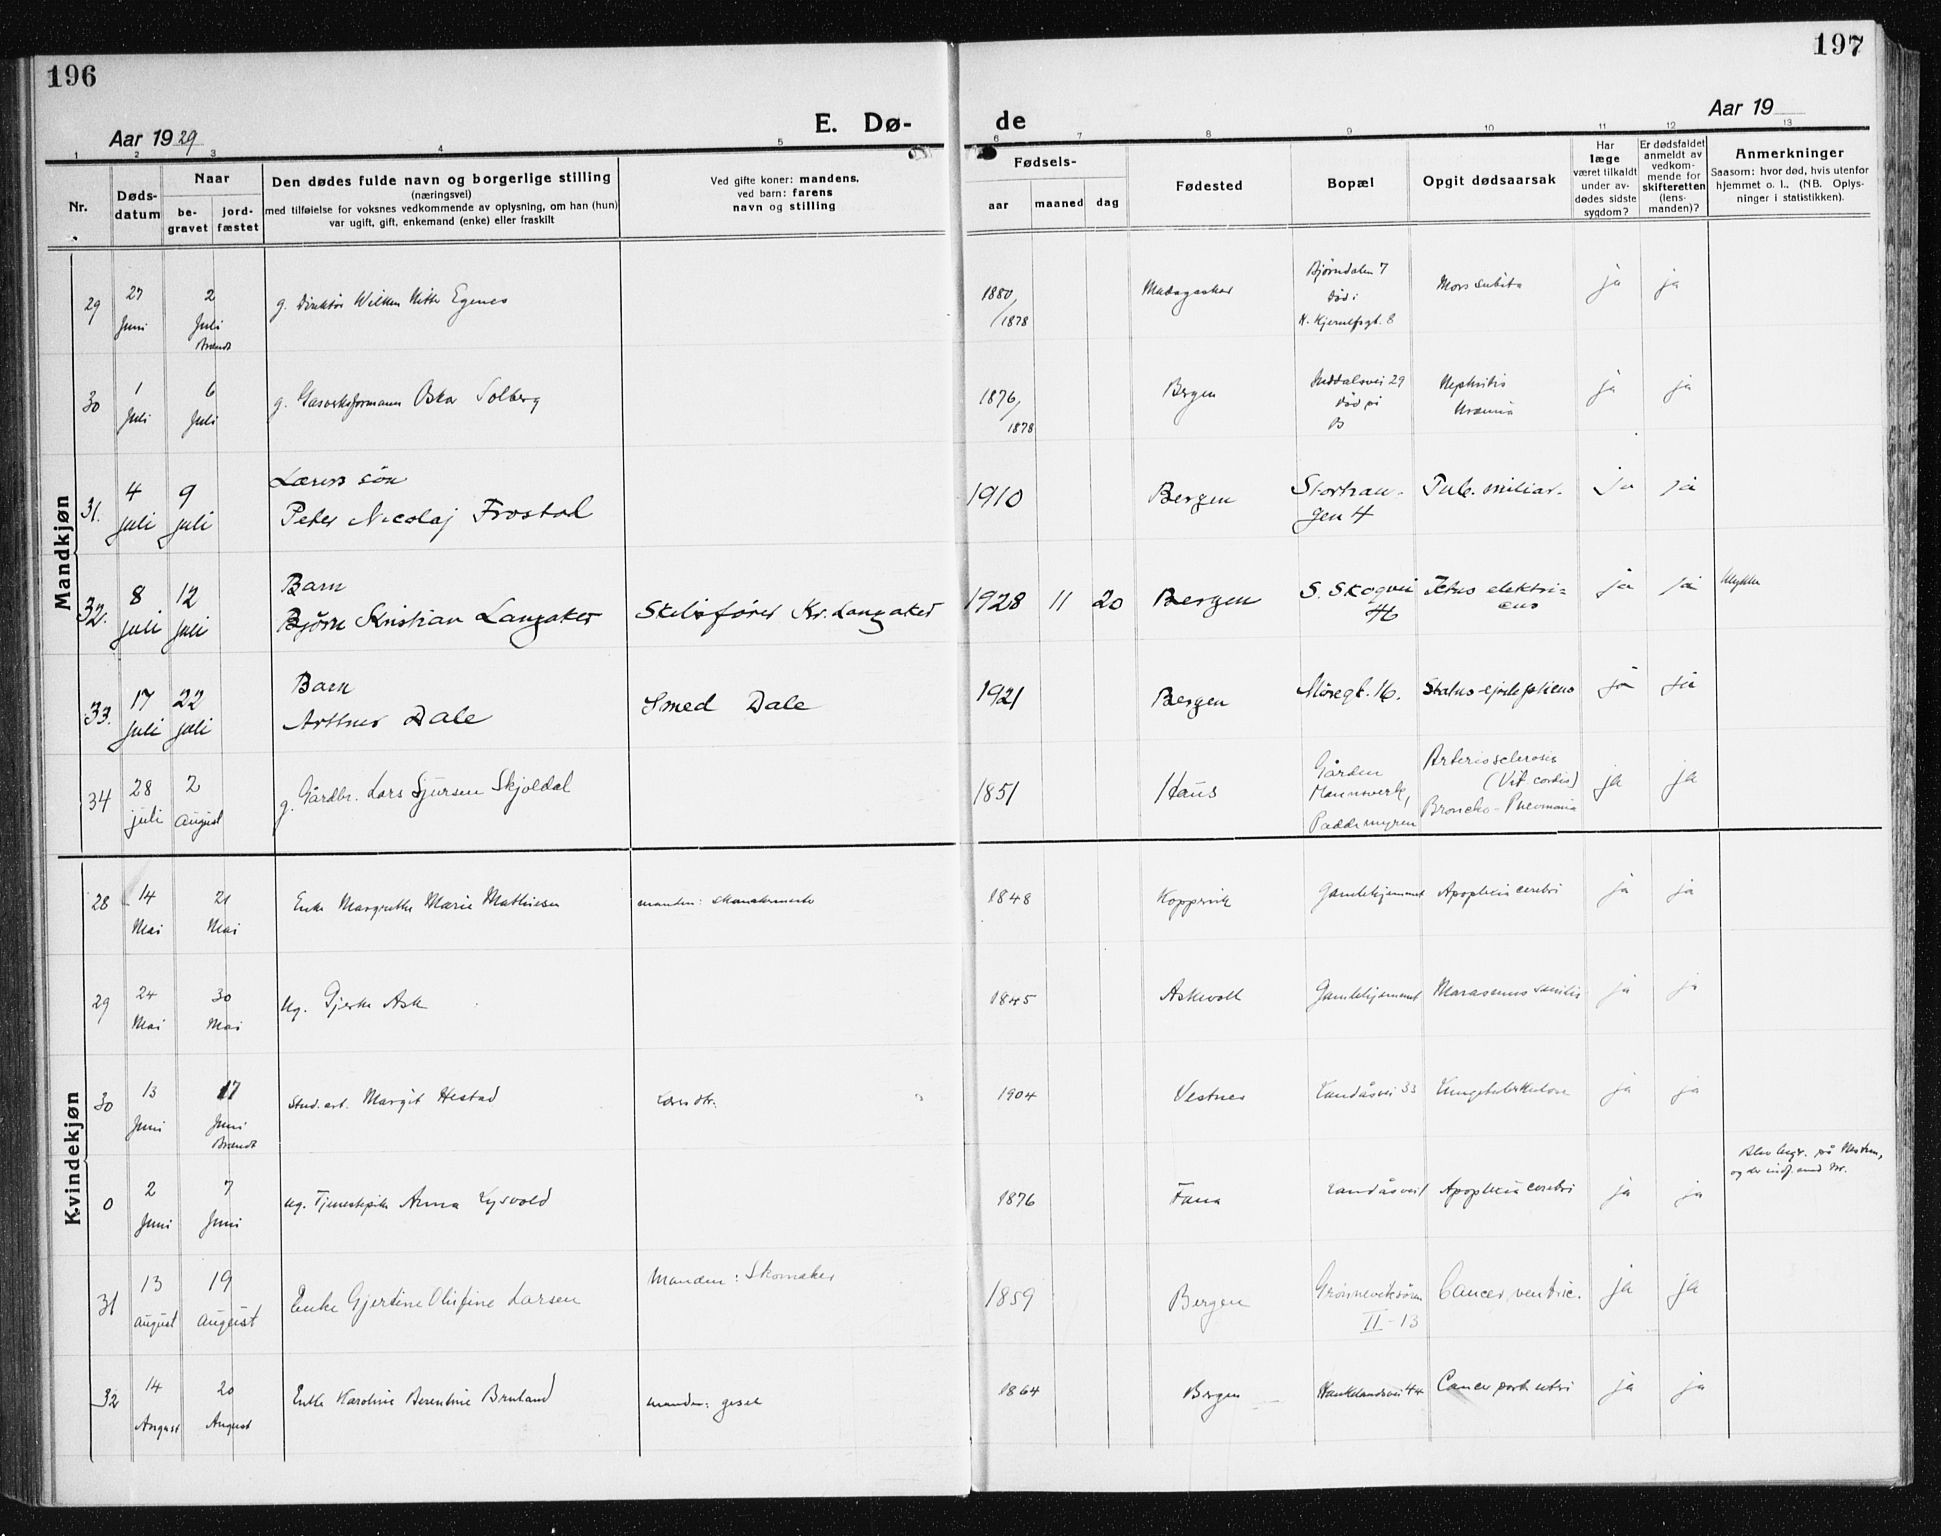 196
197
Aar 1929
E. Dø-
de
Aar 19
1 2 3 4 5 6 7 8 9 10 11 12 13
Nr.
Døds-
datum
Naar
be-
gravet
jord-
fæstet
Den dødes fulde navn og borgerlige stilling
(næringsvei)
med tilføielse for voksnes vedkommende av oplysning, om han (hun)
var ugift, gift, enkemand (enke) eller fraskilt
Ved gifte koner: mandens,
ved barn: farens
navn og stilling
Fødsels-
aar
maaned
dag
Fødested
Bopæl
Opgit dødsaarsak
Har
læge
været tilkaldt
under av-
dødes sidste
sygdom?
Er dødsfaldet
anmeldt av
vedkom-
mende for
skifteretten
(lens-
manden)?
Anmerkninger
Saasom: hvor død, hvis utenfor
hjemmet o. l.. (NB. Oplys-
ninger i statistikken).
Mandkjøn
29 27 Juni 2 Juli Brændt g. Direktör Wilken Egenes 1880/1878 Madagaskar Bjørndalen 7 Mors subita ja ja
død i
8
30 1 Juli 6 Juli g. Gasverksformann Oskar Solberg 1876/1878 Bergen 29 Nephritis ja ja
død på Uræmia
B
31. 4 juli 9 juli Lærers sön
Peter Nicolaj Frostad 1910 Bergen Stortran- Tub. miliar. ja ja
gen 4
32. 8 juli 12 juli Barn
Bjørn Kristian Langaker Kr. Langaker 1928 11 20 Bergen S. Skogvei Ictus elektri- ja ja Ulykke
cus
33. 17 juli 22 juli Barn
Arthur Dale Smed Dale 1921 Bergen Möregt. 16. Status epilepticus ja ja
34 28 juli 2 August g. Gårdbr. Lars Sjursen Skjoldal 1851 Haus Gården Arteriosclerosis ja ja
Mannsverk, (Vit. cordis)
Paddemyren Broncho-Pneumonia
Kvindekjøn
28 14 Mai 21 Mai Enke Margrethe Marie Mathiesen manden: 1848 Koppervik Gamlehjemmet Apoplexia cerebri ja ja
29 24 Mai 30 Mai ug. Gjerte Ask 1845 Askvoll Gamlehjemmet Marasmus senilis ja ja
30 13 Juni 17 Juni Brændt Stud. art. Margit Hestad Lærerdtr. 1904 Vestnes Landåsvei 33 Lungetuberkulose ja ja
0 2 Juni 7 Juni ug. Tjenestepike Anna Lysvold 1876 Fana Landåsvei 1 Apoplexia cerebri ja ja Blev begr. på
og der indf. med Nr.
31 13 August 19 August Enke Gjertine Olufine Larsen Manden: Skomaker 1859 Bergen Grönneviksören Cancer ventric. ja ja
II-13
32 14 August 20 August Enke Karoline Berentine Bruland manden: gesel 1864 Bergen Haukelandsvei 44 Cancer port. uteri ja ja